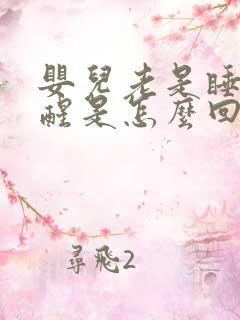 嬰兒老是睡
醒是怎麼回
尋飛2